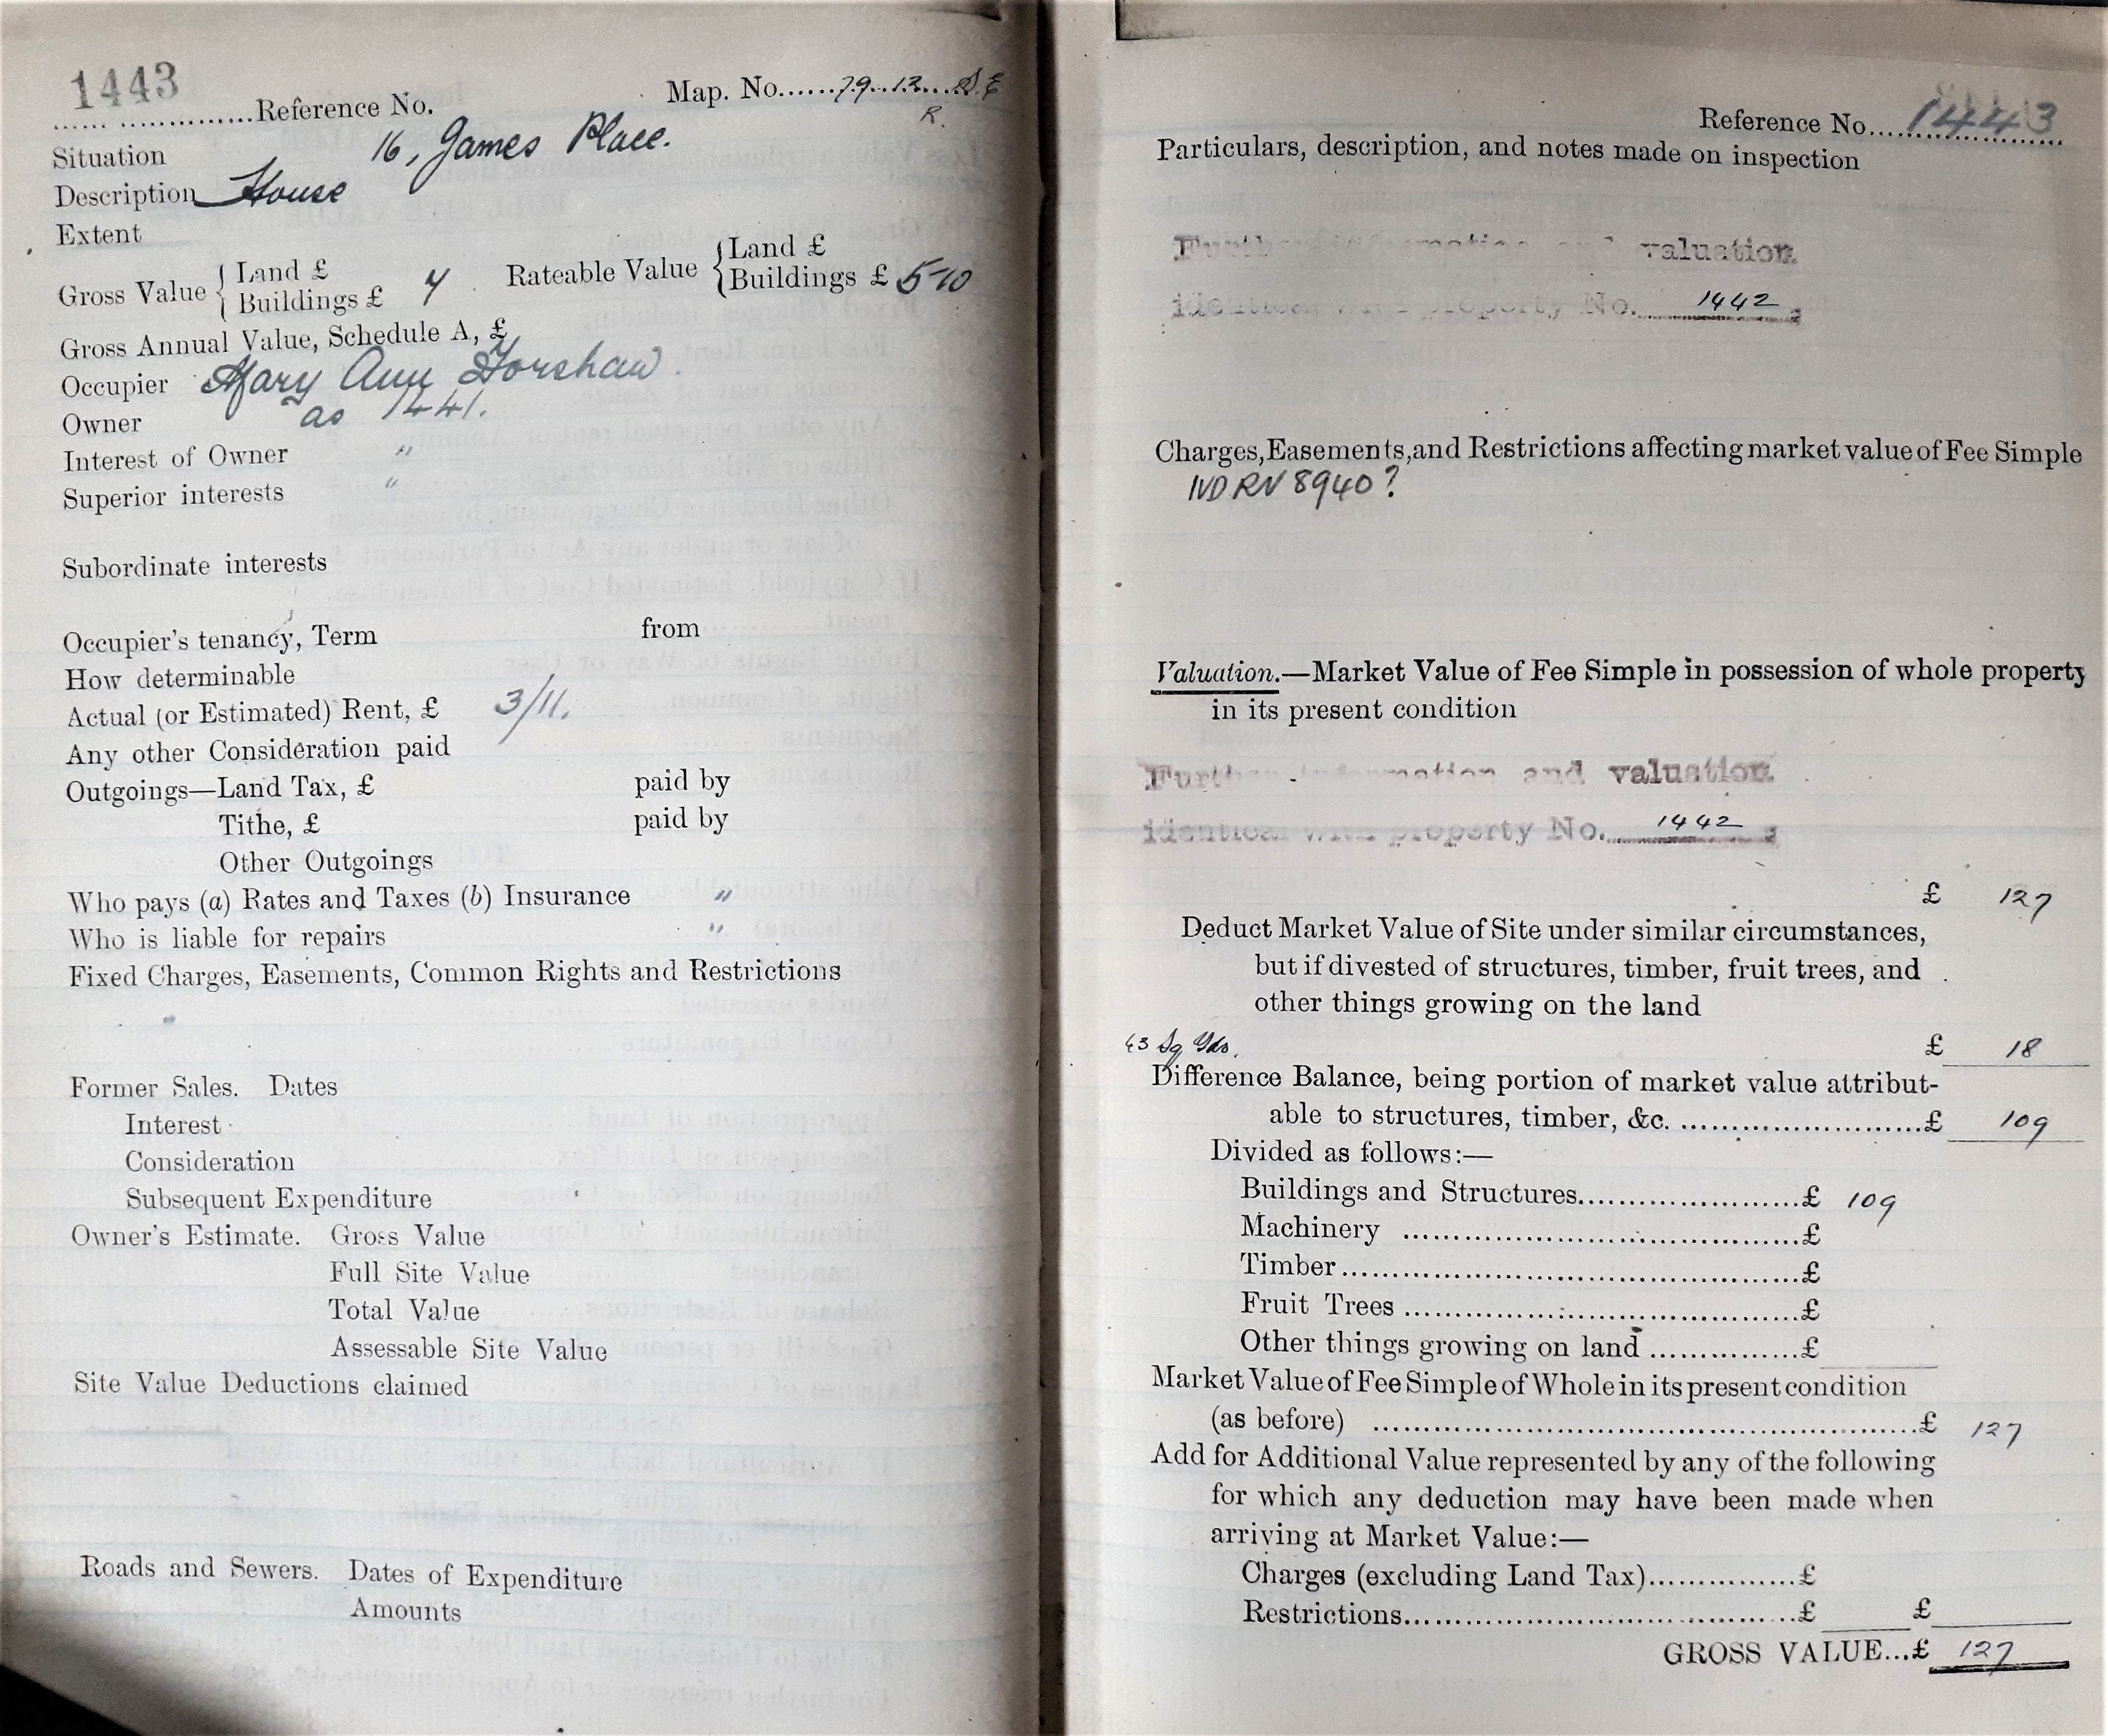 1443
Reference No. Map. No. 79.13. S.E
R.
Situation 16, James Place.
Description House
Extent
Gross Value { Land £
Buildings £ 7
Rateable Value { Land £
Buildings £ 5-10
Gross Annual Value, Schedule A, £
Occupier Mary Ann Forshaw.
Owner as 1441.
Interest of Owner "
Superior interests "
Subordinate interests
Occupier's tenancy, Term from
How determinable
Actual (or Estimated) Rent, £ 3/11.
Any other Consideration paid
Outgoings—Land Tax, £ paid by
Tithe, £ paid by
Other Outgoings
Who pays (a) Rates and Taxes (b) Insurance "
Who is liable for repairs "
Fixed Charges, Easements, Common Rights and Restrictions
"
Former Sales. Dates
Interest
Consideration
Subsequent Expenditure
Owner's Estimate. Gross Value
Full Site Value
Total Value
Assessable Site Value
Site Value Deductions claimed
Roads and Sewers. Dates of Expenditure
Amounts
Reference No. 1443
Particulars, description, and notes made on inspection
Further information and valuation
identical with property No. 1442
Charges, Easements, and Restrictions affecting market value of Fee Simple
IVD RN 8940?
Valuation.—Market Value of Fee Simple in possession of whole property
in its present condition
Further information and valuation
identical with property No. 1442
£ 127
Deduct Market Value of Site under similar circumstances,
but if divested of structures, timber, fruit trees, and
other things growing on the land
63 Sq Yds. £ 18
Difference Balance, being portion of market value attribut-
able to structures, timber, &c. £ 109
Divided as follows:—
Buildings and Structures £ 109
Machinery £
Timber £
Fruit Trees £
Other things growing on land £
Market Value of Fee Simple of Whole in its present condition
(as before) £ 127
Add for Additional Value represented by any of the following
for which any deduction may have been made when
arriving at Market Value:—
Charges (excluding Land Tax) £
Restrictions £ £
GROSS VALUE...£ 127